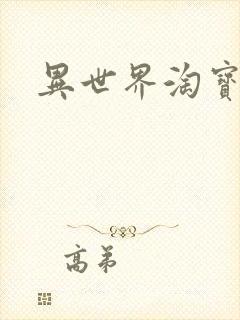 異世界淘寶
高弟